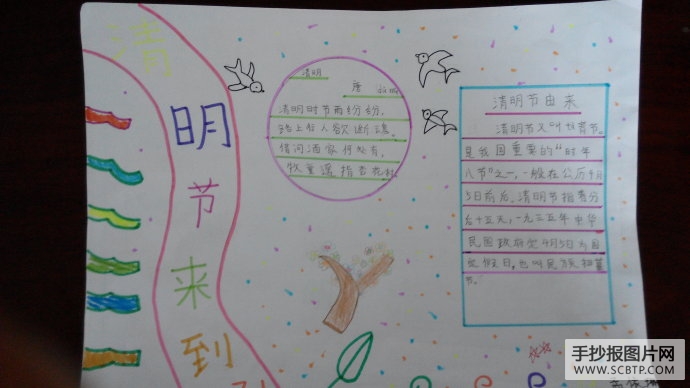 清明节来到
清明
唐 dù mù
清明时节雨纷纷,
路上行人欲断魂。
借问酒家何处有,
牧童遥指杏花村
清明节由来
清明节又叫踏青节,
是我国重要的“时年
八节”之一,一般在公历4月
5日前后。清明节指春分
后十五天,一九三五年中华
民国政府定4月5日为国
定假日,也叫民族扫墓
节。
手抄报图片网
WWW.SCBTP.COM